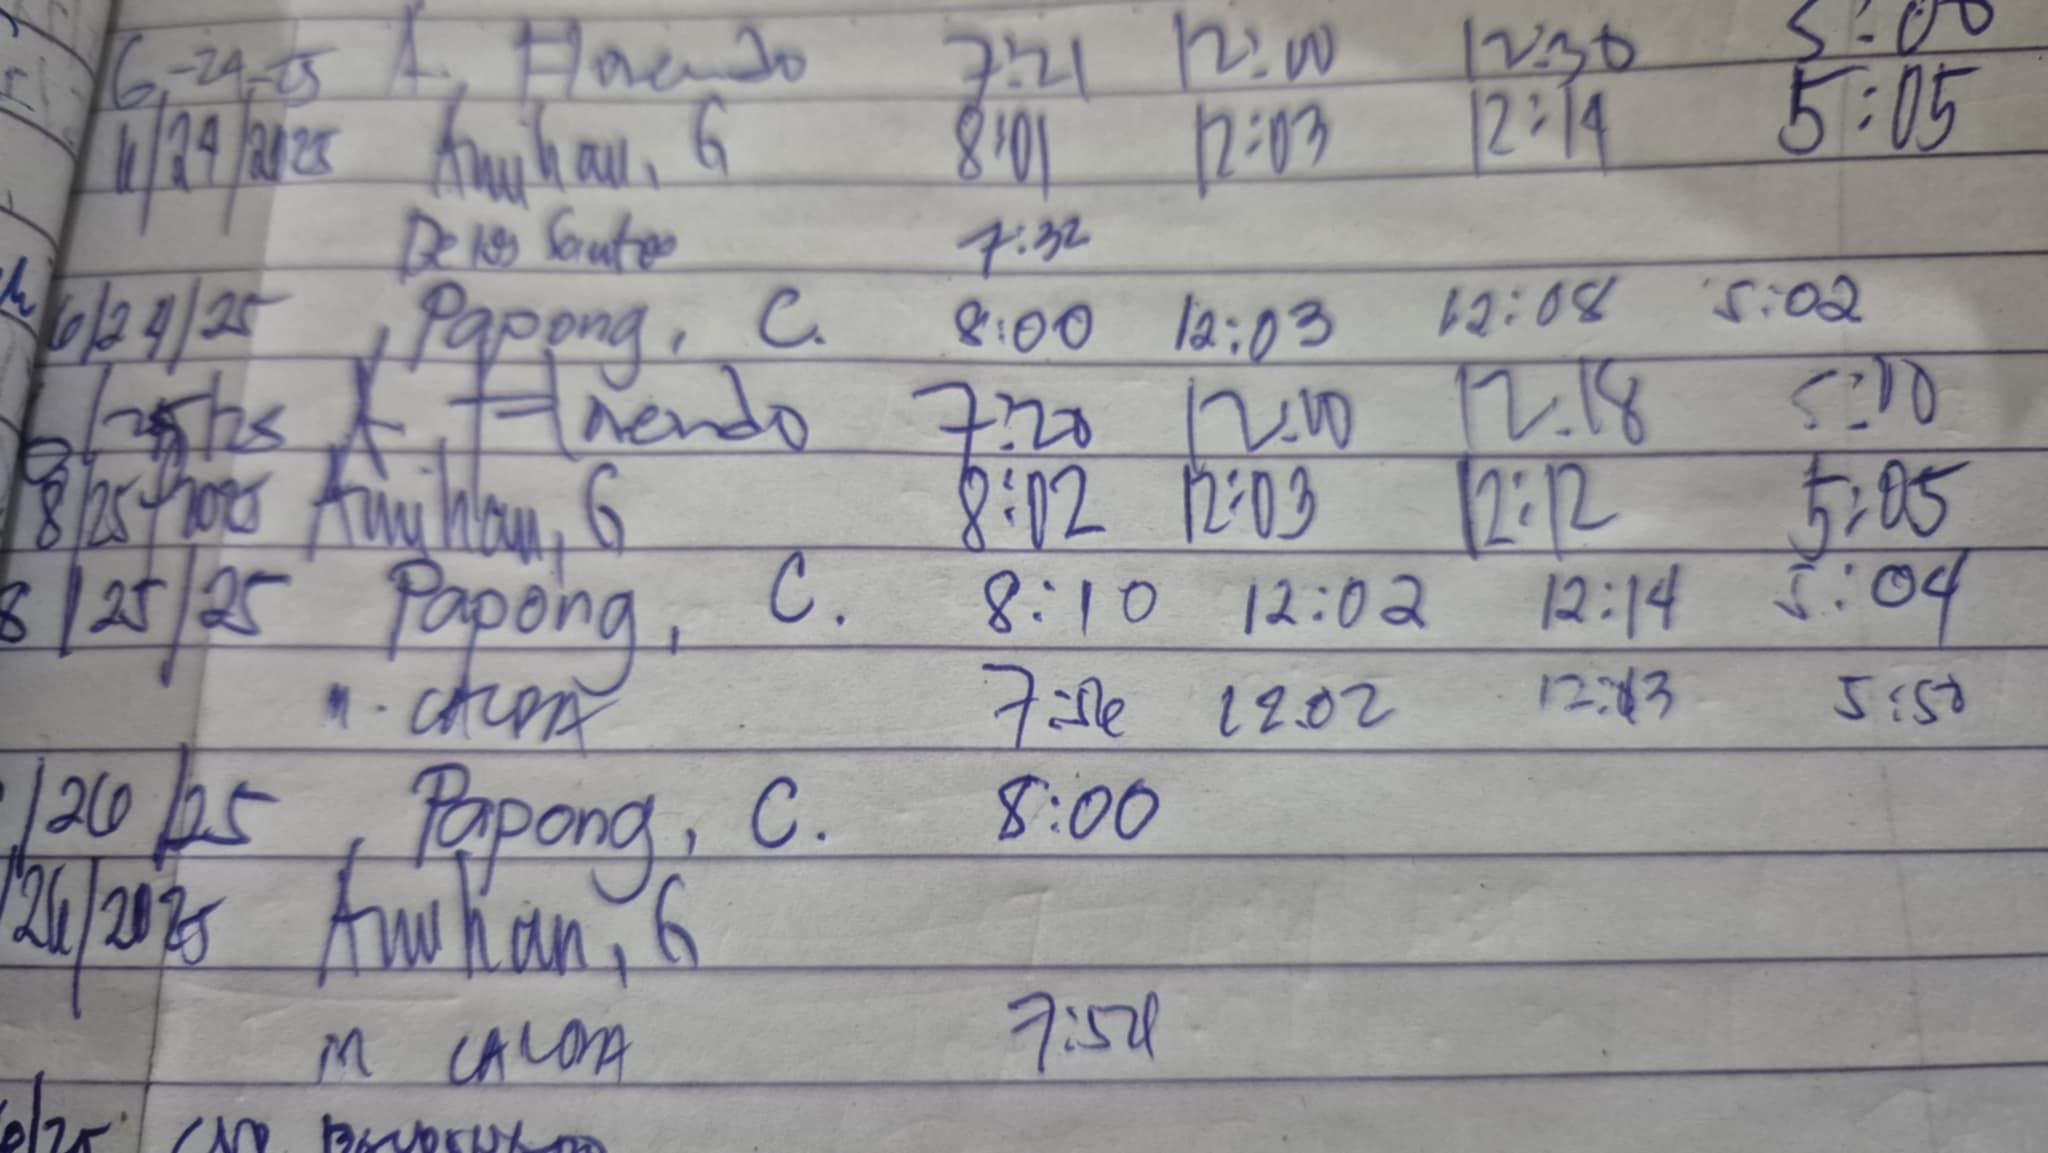 6-24-25 A. Florendo 7:21 12:00 12:30 5:00
6/24/2025 Amihan, G 8:01 12:03 12:14 5:05
Delos Santos 7:32
6/24/25 , Papong, C. 8:00 12:03 12:08 5:02
/25/25 A. Florendo 7:20 12:00 12:18 5:00
8/25/2025 Amihan, G 8:02 12:03 12:12 5:05
8/25/25 Papong, C. 8:10 12:02 12:14 5:04
M. CALODA 12:02 12:13 5:50
/26/25 , Papong, C. 8:00
/26/2025 Amihan, G
M CALODA 7:54
/25